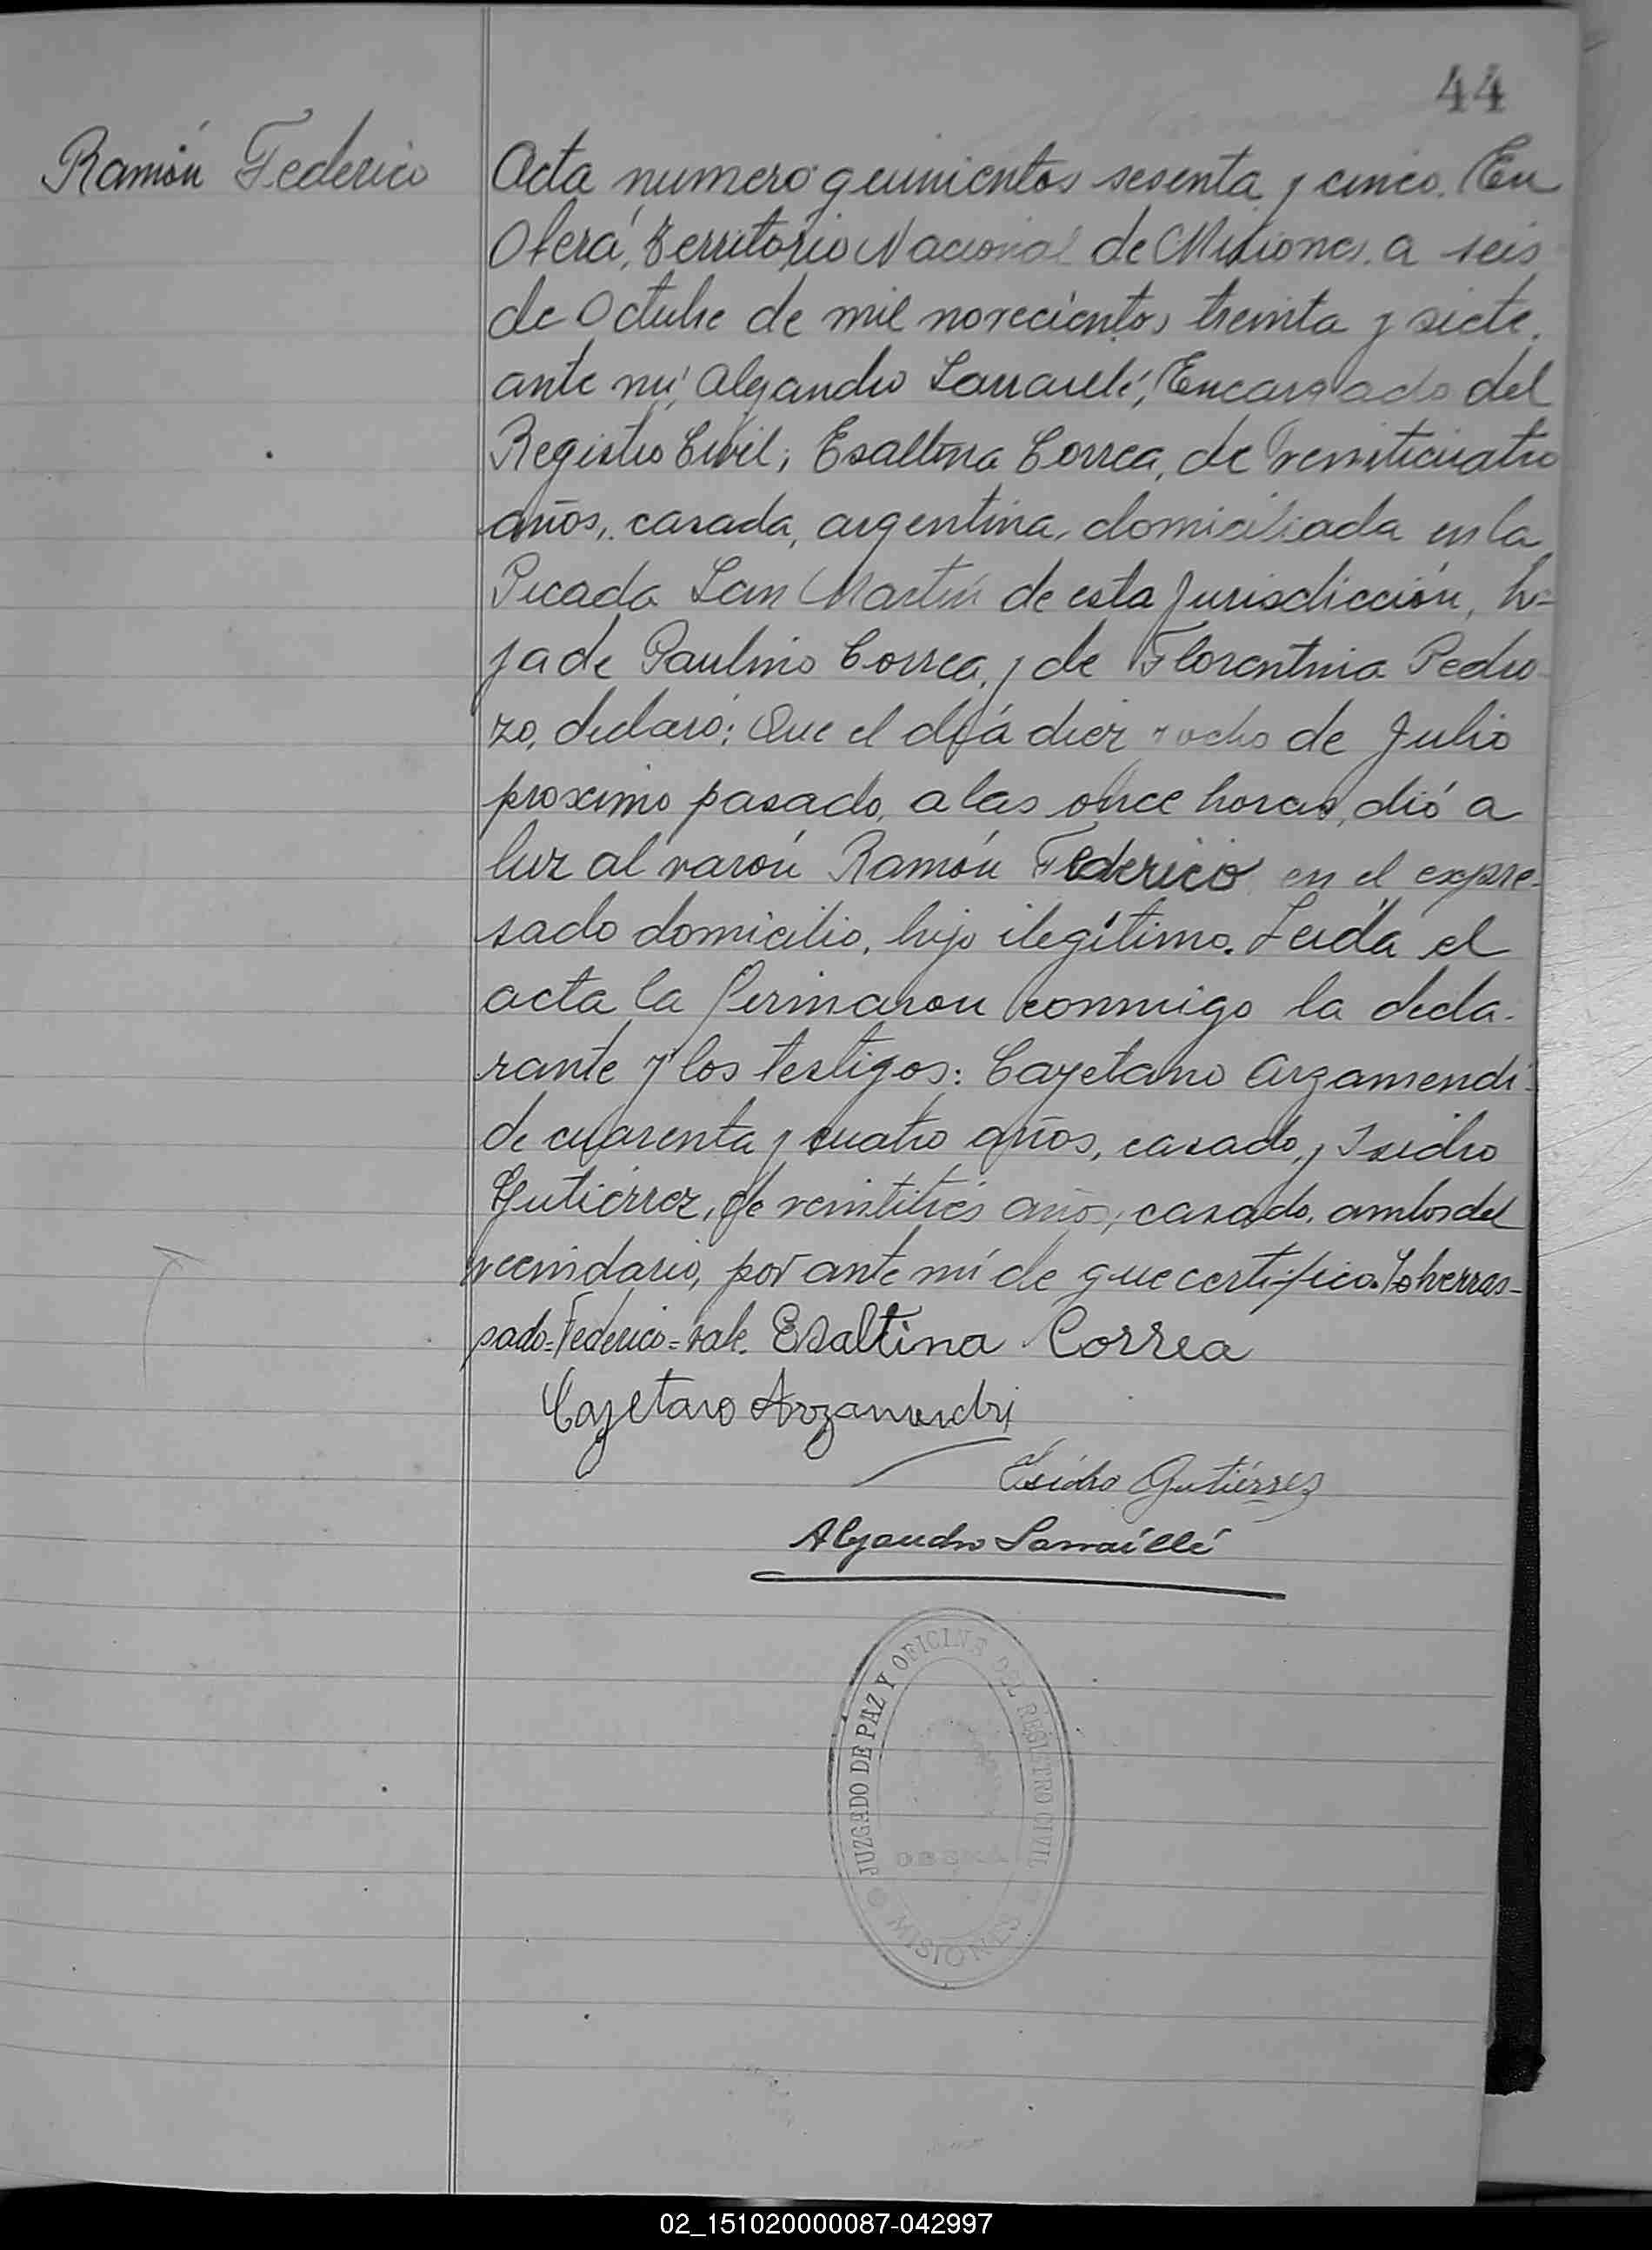 44
Ramón Federico
Acta numero quinientos sesenta y cinco. En
Oberá, Territorio Nacional de Misiones, a seis
de Octubre de mil novecientos treinta y siete,
ante mí, Alejandro Sarraillé, Encargado del
Registro Civil; Esaltina Correa, de veinticuatro
años, casada, argentina, domiciliada en la
Picada San Martín de esta Jurisdicción, hi-
ja de Paulino Correa, y de Florentina Pedro-
zo, declaró: Que el día diez y ocho de Julio
proximo pasado, a las once horas, dió a
luz al varón Ramón Federico en el expre-
sado domicilio, hijo ilegítimo. Leída el
acta la firmaron conmigo la decla-
rante y los testigos: Cayetano Arzamendi
de cuarenta y cuatro años, casado, y Isidro
Gutiérrez, de veintitrés años, casado, ambos del
vecindario, por ante mí de que certifico.
pado=Federico=vale. Esaltina Correa
Cayetano Arzamendi
Isidro Gutiérrez
Alejandro Sarraillé
JUZGADO DE PAZ Y OFICINA DEL REGISTRO CIVIL
OBERA
MISIONES
02_151020000087-042997